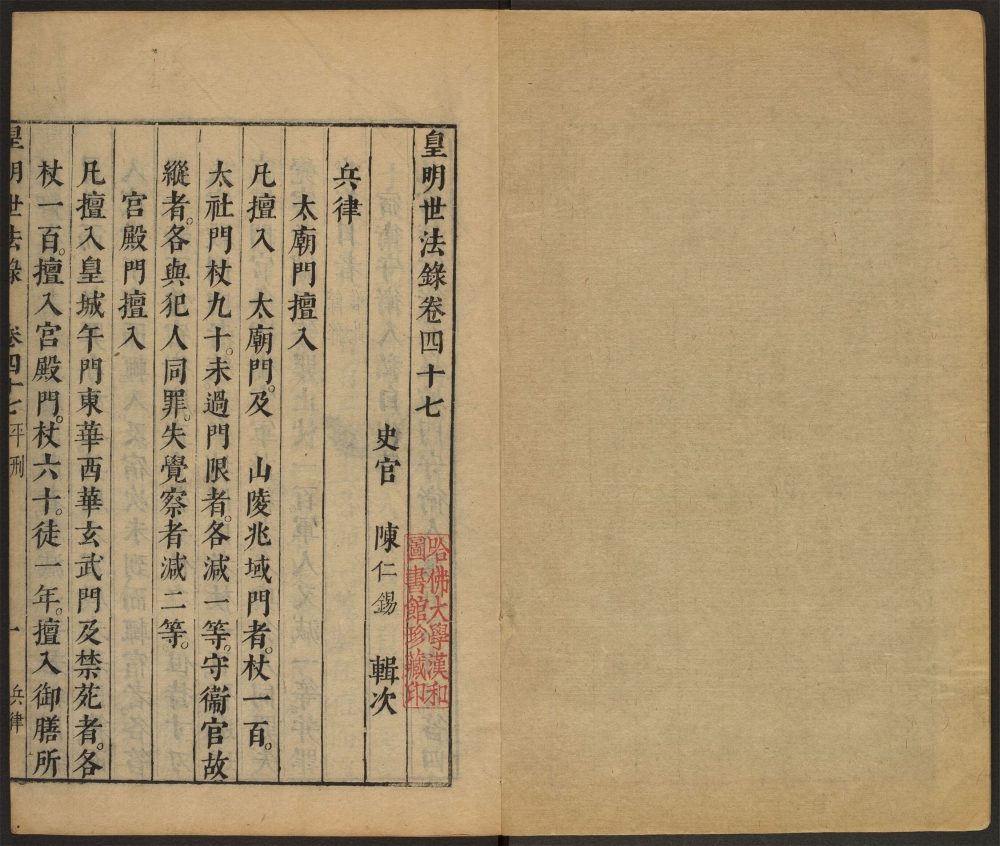 皇明世法錄卷四十七
史官 陳仁錫 輯次
哈佛大學漢和
圖書館珍藏印
兵律
太廟門擅入
凡擅入 太廟門。及 山陵兆域門者。杖一百。
太社門杖九十。未過門限者。各減一等。守衞官故
縱者。各與犯人同罪。失覺察者減二等。
官殿門擅入
凡擅入皇城午門東華西華玄武門及禁苑者。各
杖一百。擅入宮殿門。杖六十。徒一年。擅入御膳所
皇明世法錄 卷四十七 平刑 一 兵律